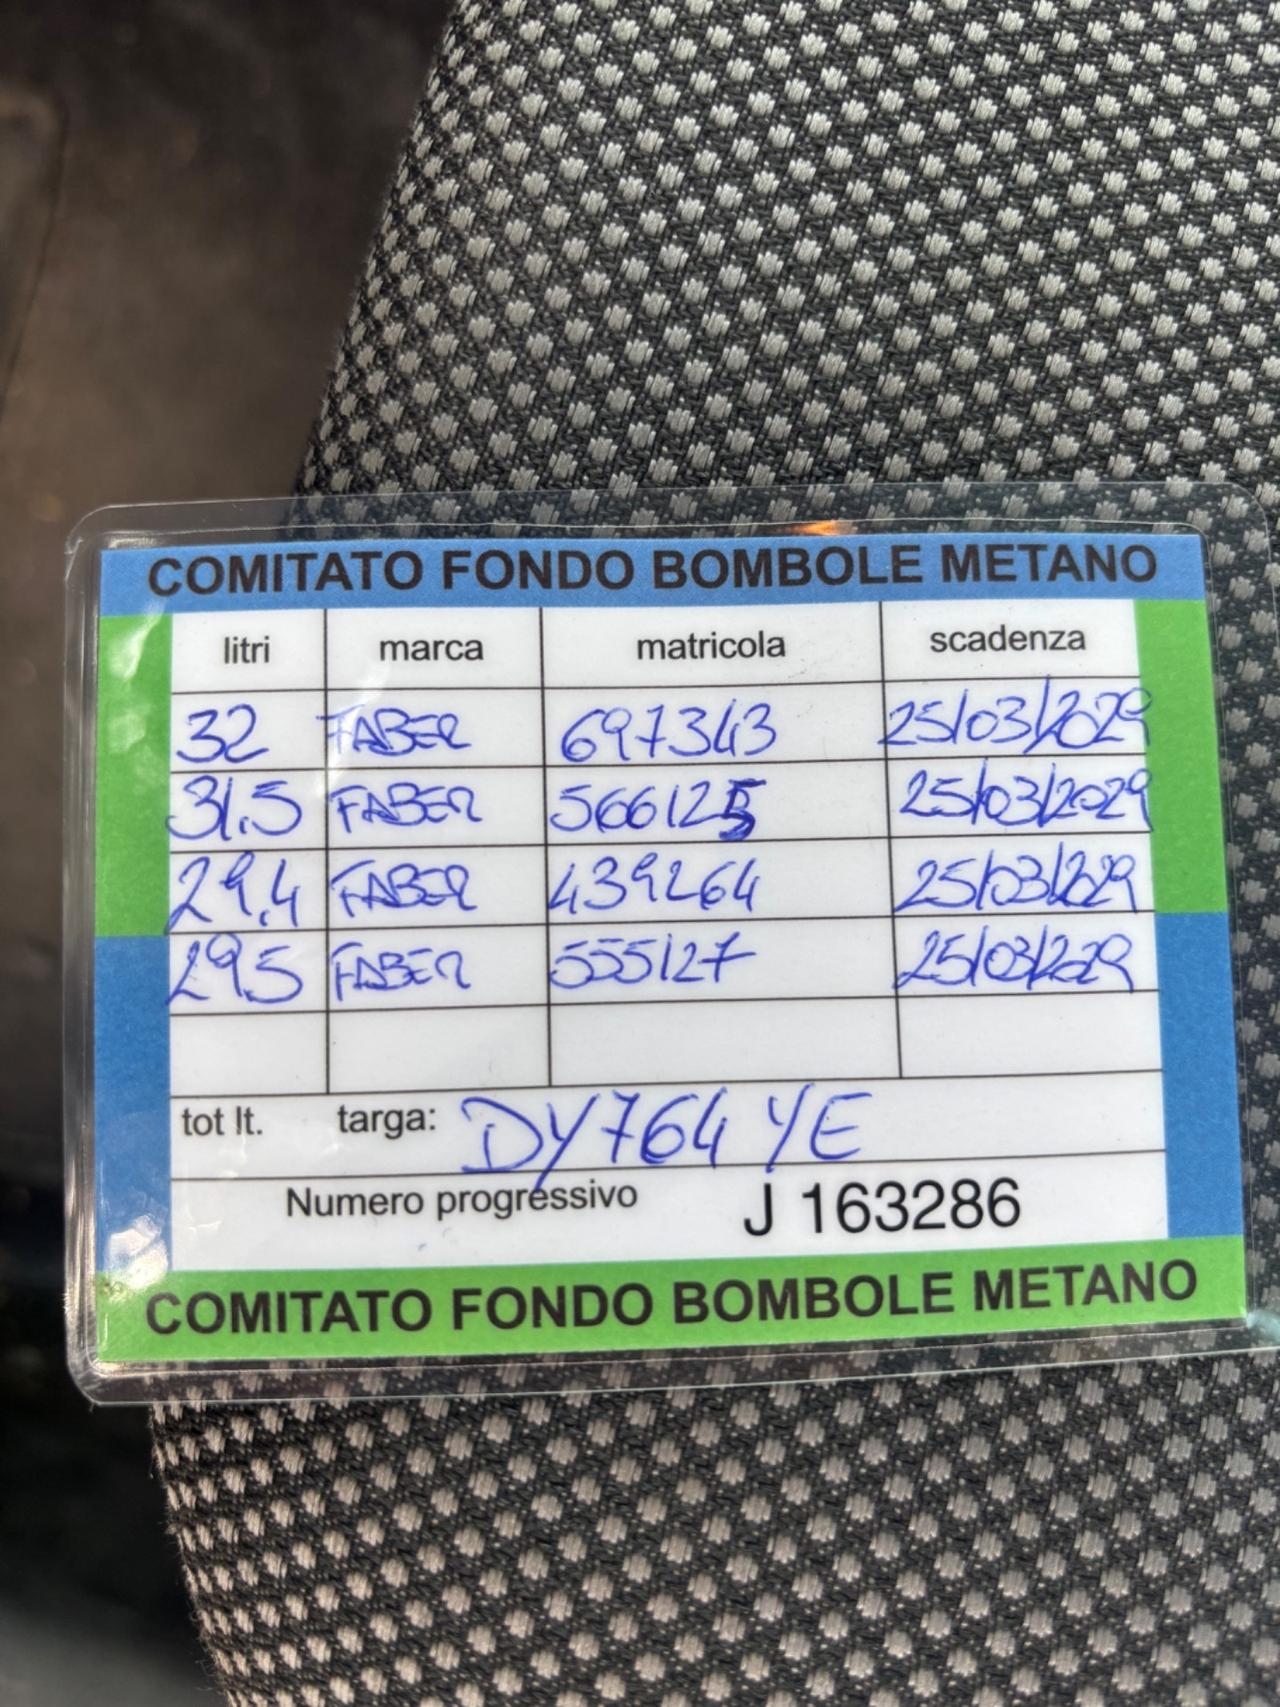 COMITATO FONDO BOMBOLE METANO
litri marca matricola scadenza
32 FABER 697343 25/03/2029
31.5 FABER 566125 25/03/2029
29,4 FABER 439264 25/03/2029
29,5 FABER 555127 25/03/2029
tot lt. targa: DY764YE
Numero progressivo J 163286
COMITATO FONDO BOMBOLE METANO